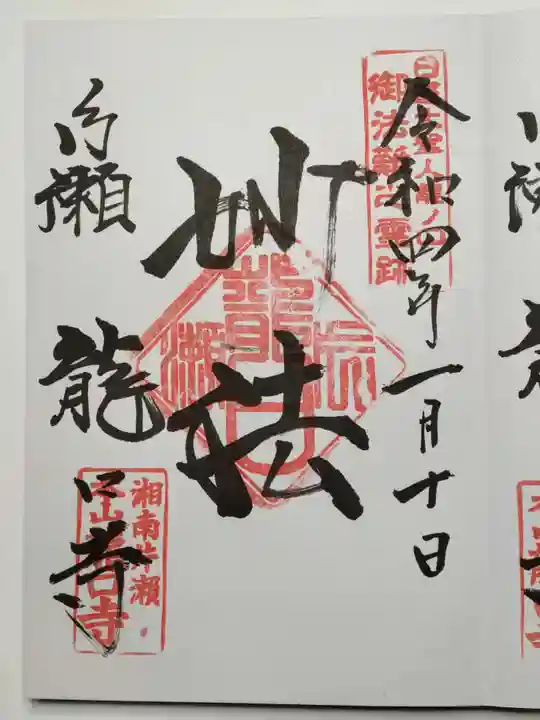 日蓮聖人龍ノ口
御法難之霊跡
令和四年一月十日
妙法
龍口
片瀬
片瀬
龍口寺
湘南片瀬
本山龍口寺